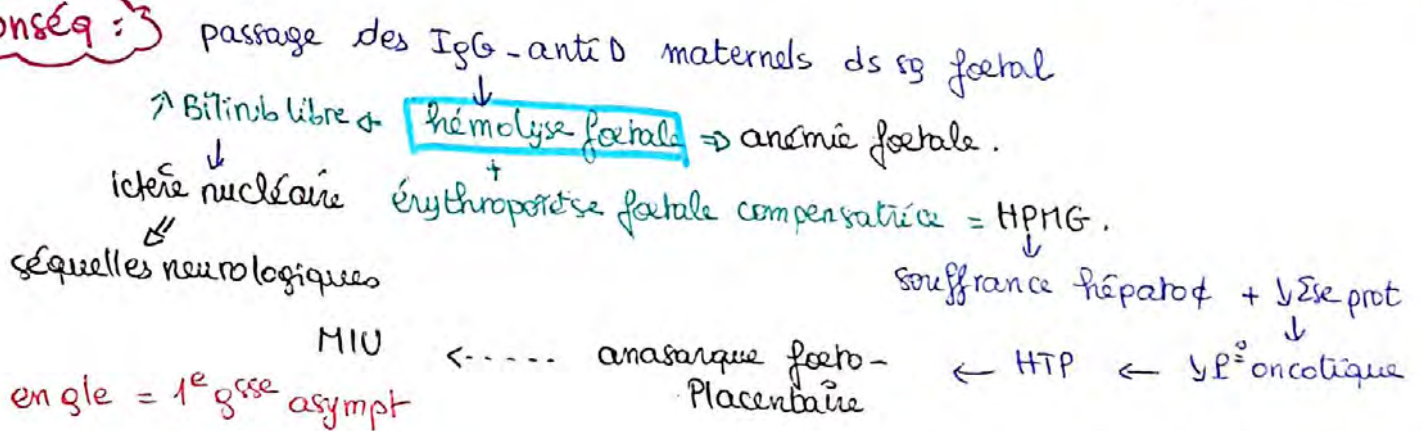 onséq : passage des IgG-anti D maternels ds sg foetal
↓
↗ Bilirub libre ← hémolyse foetale ⇒ anémie foetale.
↓ +
ictère nucléaire érythropoïèse foetale compensatrice = HPMG.
⇓ ↓
séquelles neurologiques souffrance hépatoȼ + ↓Σse prot
↓
MIU <..... anasarque foeto- ← HTP ← ↓P° oncotique
Placentaire
en gle = 1e gsse asympt